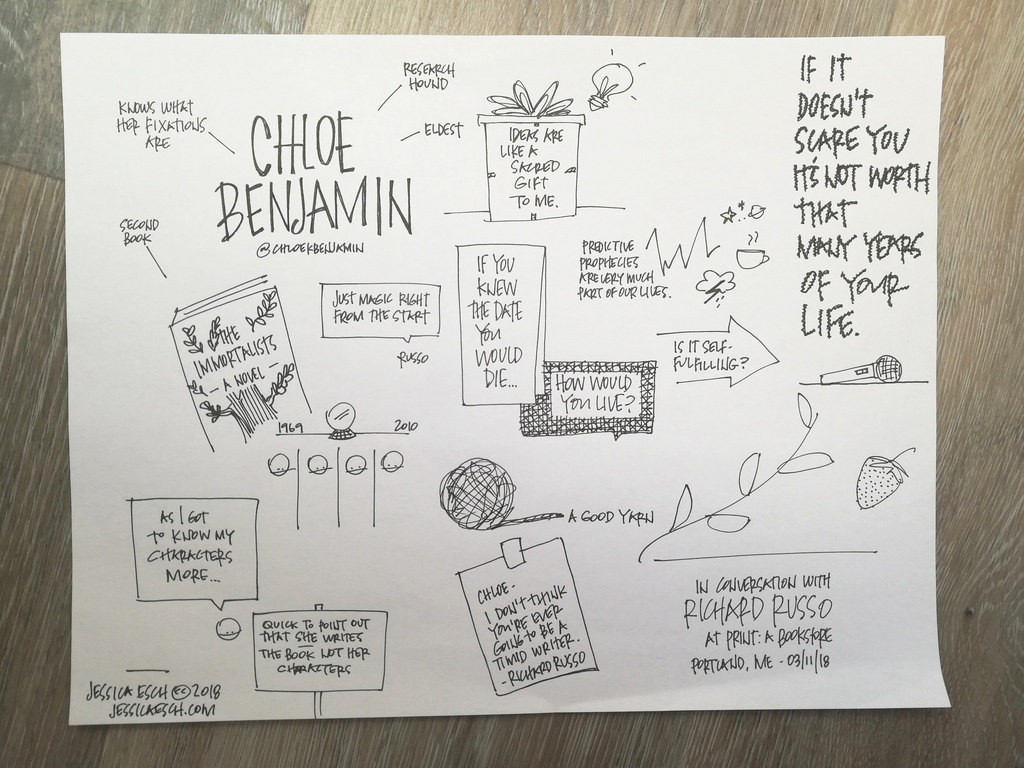 KNOWS WHAT
HER FIXATIONS
ARE
RESEARCH
HOUND
ELDEST
CHLOE
BENJAMIN
@CHLOEKBENJAMIN
SECOND
BOOK
THE
IMMORTALISTS
- A NOVEL -
JUST MAGIC RIGHT
FROM THE START
RUSSO
IDEAS ARE
LIKE A
SACRED
GIFT
TO ME.
IF YOU
KNEW
THE DATE
YOU
WOULD
DIE...
HOW WOULD
YOU LIVE?
PREDICTIVE
PROPHECIES
ARE VERY MUCH
PART OF OUR LIVES.
IS IT SELF-
FULFILLING?
IF IT
DOESN'T
SCARE YOU
IT'S NOT WORTH
THAT
MANY YEARS
OF YOUR
LIFE.
1969
2010
AS I GOT
TO KNOW MY
CHARACTERS
MORE...
QUICK TO POINT OUT
THAT SHE WRITES
THE BOOK NOT HER
CHARACTERS
A GOOD YARN
CHLOE-
I DON'T THINK
YOU'RE EVER
GOING TO BE A
TIMID WRITER.
- RICHARD RUSSO
IN CONVERSATION WITH
RICHARD RUSSO
AT PRINT: A BOOKSTORE
PORTLAND, ME - 03/11/18
JESSICA ESCH 🅭 2018
JESSICAESCH.COM